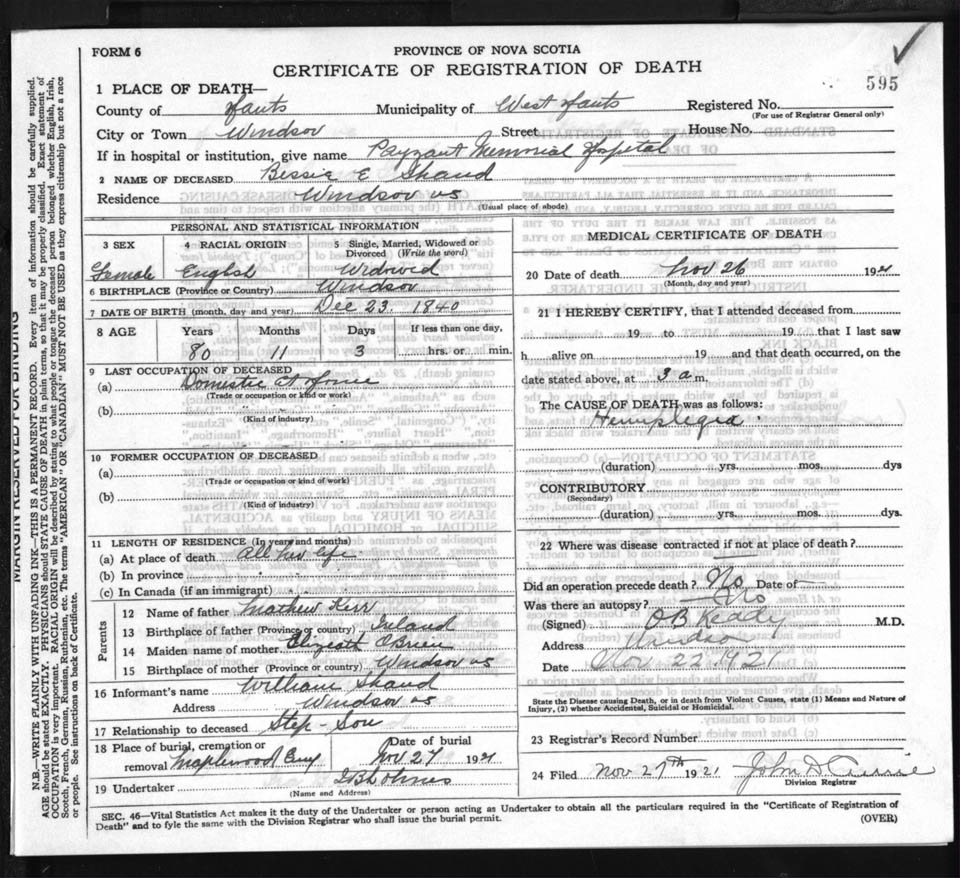 FORM 6
PROVINCE OF NOVA SCOTIA
CERTIFICATE OF REGISTRATION OF DEATH
595
1 PLACE OF DEATH—
County of Hants Municipality of West Hants Registered No.
(For use of Registrar General only)
City or Town Windsor Street House No.
If in hospital or institution, give name Payzant Memorial Hospital
2 NAME OF DECEASED Bessie E Shand
Residence Windsor NS
(Usual place of abode)
PERSONAL AND STATISTICAL INFORMATION
3 SEX 4 RACIAL ORIGIN 5 Single, Married, Widowed or Divorced (Write the word)
Female English Widowed
6 BIRTHPLACE (Province or Country) Windsor
7 DATE OF BIRTH (month, day and year) Dec 23 1840
8 AGE Years Months Days If less than one day,
80 11 3 hrs. or min.
9 LAST OCCUPATION OF DECEASED
(a) Domestic at Home
(Trade or occupation or kind or work)
(b)
(Kind of industry)
10 FORMER OCCUPATION OF DECEASED
(a)
(Trade or occupation or kind of work)
(b)
(Kind of industry)
11 LENGTH OF RESIDENCE (In years and months)
(a) At place of death All her life
(b) In province
(c) In Canada (if an immigrant)
Parents
12 Name of father Mathew Kerr
13 Birthplace of father (Province or country) Ireland
14 Maiden name of mother Elizabeth O'Brien
15 Birthplace of mother (Province or country) Windsor NS
16 Informant's name William Shand
Address Windsor NS
17 Relationship to deceased Step-Son
18 Place of burial, cremation or removal Maplewood Cemy Date of burial Nov 27 1921
19 Undertaker
(Name and Address)
MEDICAL CERTIFICATE OF DEATH
20 Date of death Nov 26 1921
(Month, day and year)
21 I HEREBY CERTIFY, that I attended deceased from
19 to 19 that I last saw
h alive on 19 and that death occurred, on the
date stated above, at 3 a m.
The CAUSE OF DEATH was as follows:
Hemiplegia
(duration) yrs. mos. dys
CONTRIBUTORY
(Secondary)
(duration) yrs. mos. dys
22 Where was disease contracted if not at place of death?
Did an operation precede death? No Date of
Was there an autopsy? No
(Signed) O B Keddy M.D.
Address Windsor
Date Nov 22 1921
State the Disease causing Death, or in death from Violent Causes, state (1) Means and Nature of
Injury, (2) whether Accidental, Suicidal or Homicidal.
23 Registrar's Record Number
24 Filed Nov 27th 1921 John A
Division Registrar
SEC. 46—Vital Statistics Act makes it the duty of the Undertaker or person acting as Undertaker to obtain all the particulars required in the "Certificate of Registration of
Death" and to fyle the same with the Division Registrar who shall issue the burial permit.
(OVER)
MARGIN RESERVED FOR BINDING
N.B.—WRITE PLAINLY WITH UNFADING INK—THIS IS A PERMANENT RECORD. Every item of information should be carefully supplied.
AGE should be stated EXACTLY. PHYSICIANS should STATE CAUSE OF DEATH in plain terms, so that it may be properly classified. Exact statement of
OCCUPATION is very important. RACIAL ORIGIN will be described by stating to what people or tongue the deceased person belonged whether English, Irish,
Scotch, French, German, Russian, Ruthenian, etc. The terms "AMERICAN" OR "CANADIAN" MUST NOT BE USED as they express citizenship but not a race
or people. See instructions on back of Certificate.